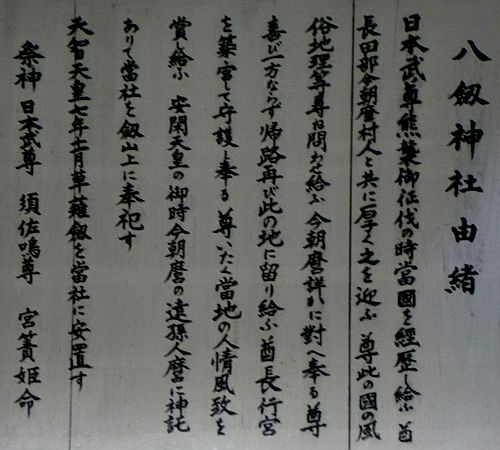 八劔神社由緒
日本武尊熊襲御征伐の時當國を経歴し給ふ酋
長田部今朝麿村人と共に厚く之を迎ふ 尊此の國の風
俗地理等尊ね問わせ給ふ今朝麿詳かに對へ奉る尊
喜び一方ならず帰路再び此の地に留り給ふ酋長行宮
を築宮して守護し奉る 尊いたく當地の人情風致を
賞し給ふ 安閑天皇の御時今朝麿の遠孫人麿に神託
ありて當社を劔山上に奉祀す
天智天皇七年十一月草薙劔を當社に安置す
祭神 日本武尊 須佐鳴尊 宮簀姫命